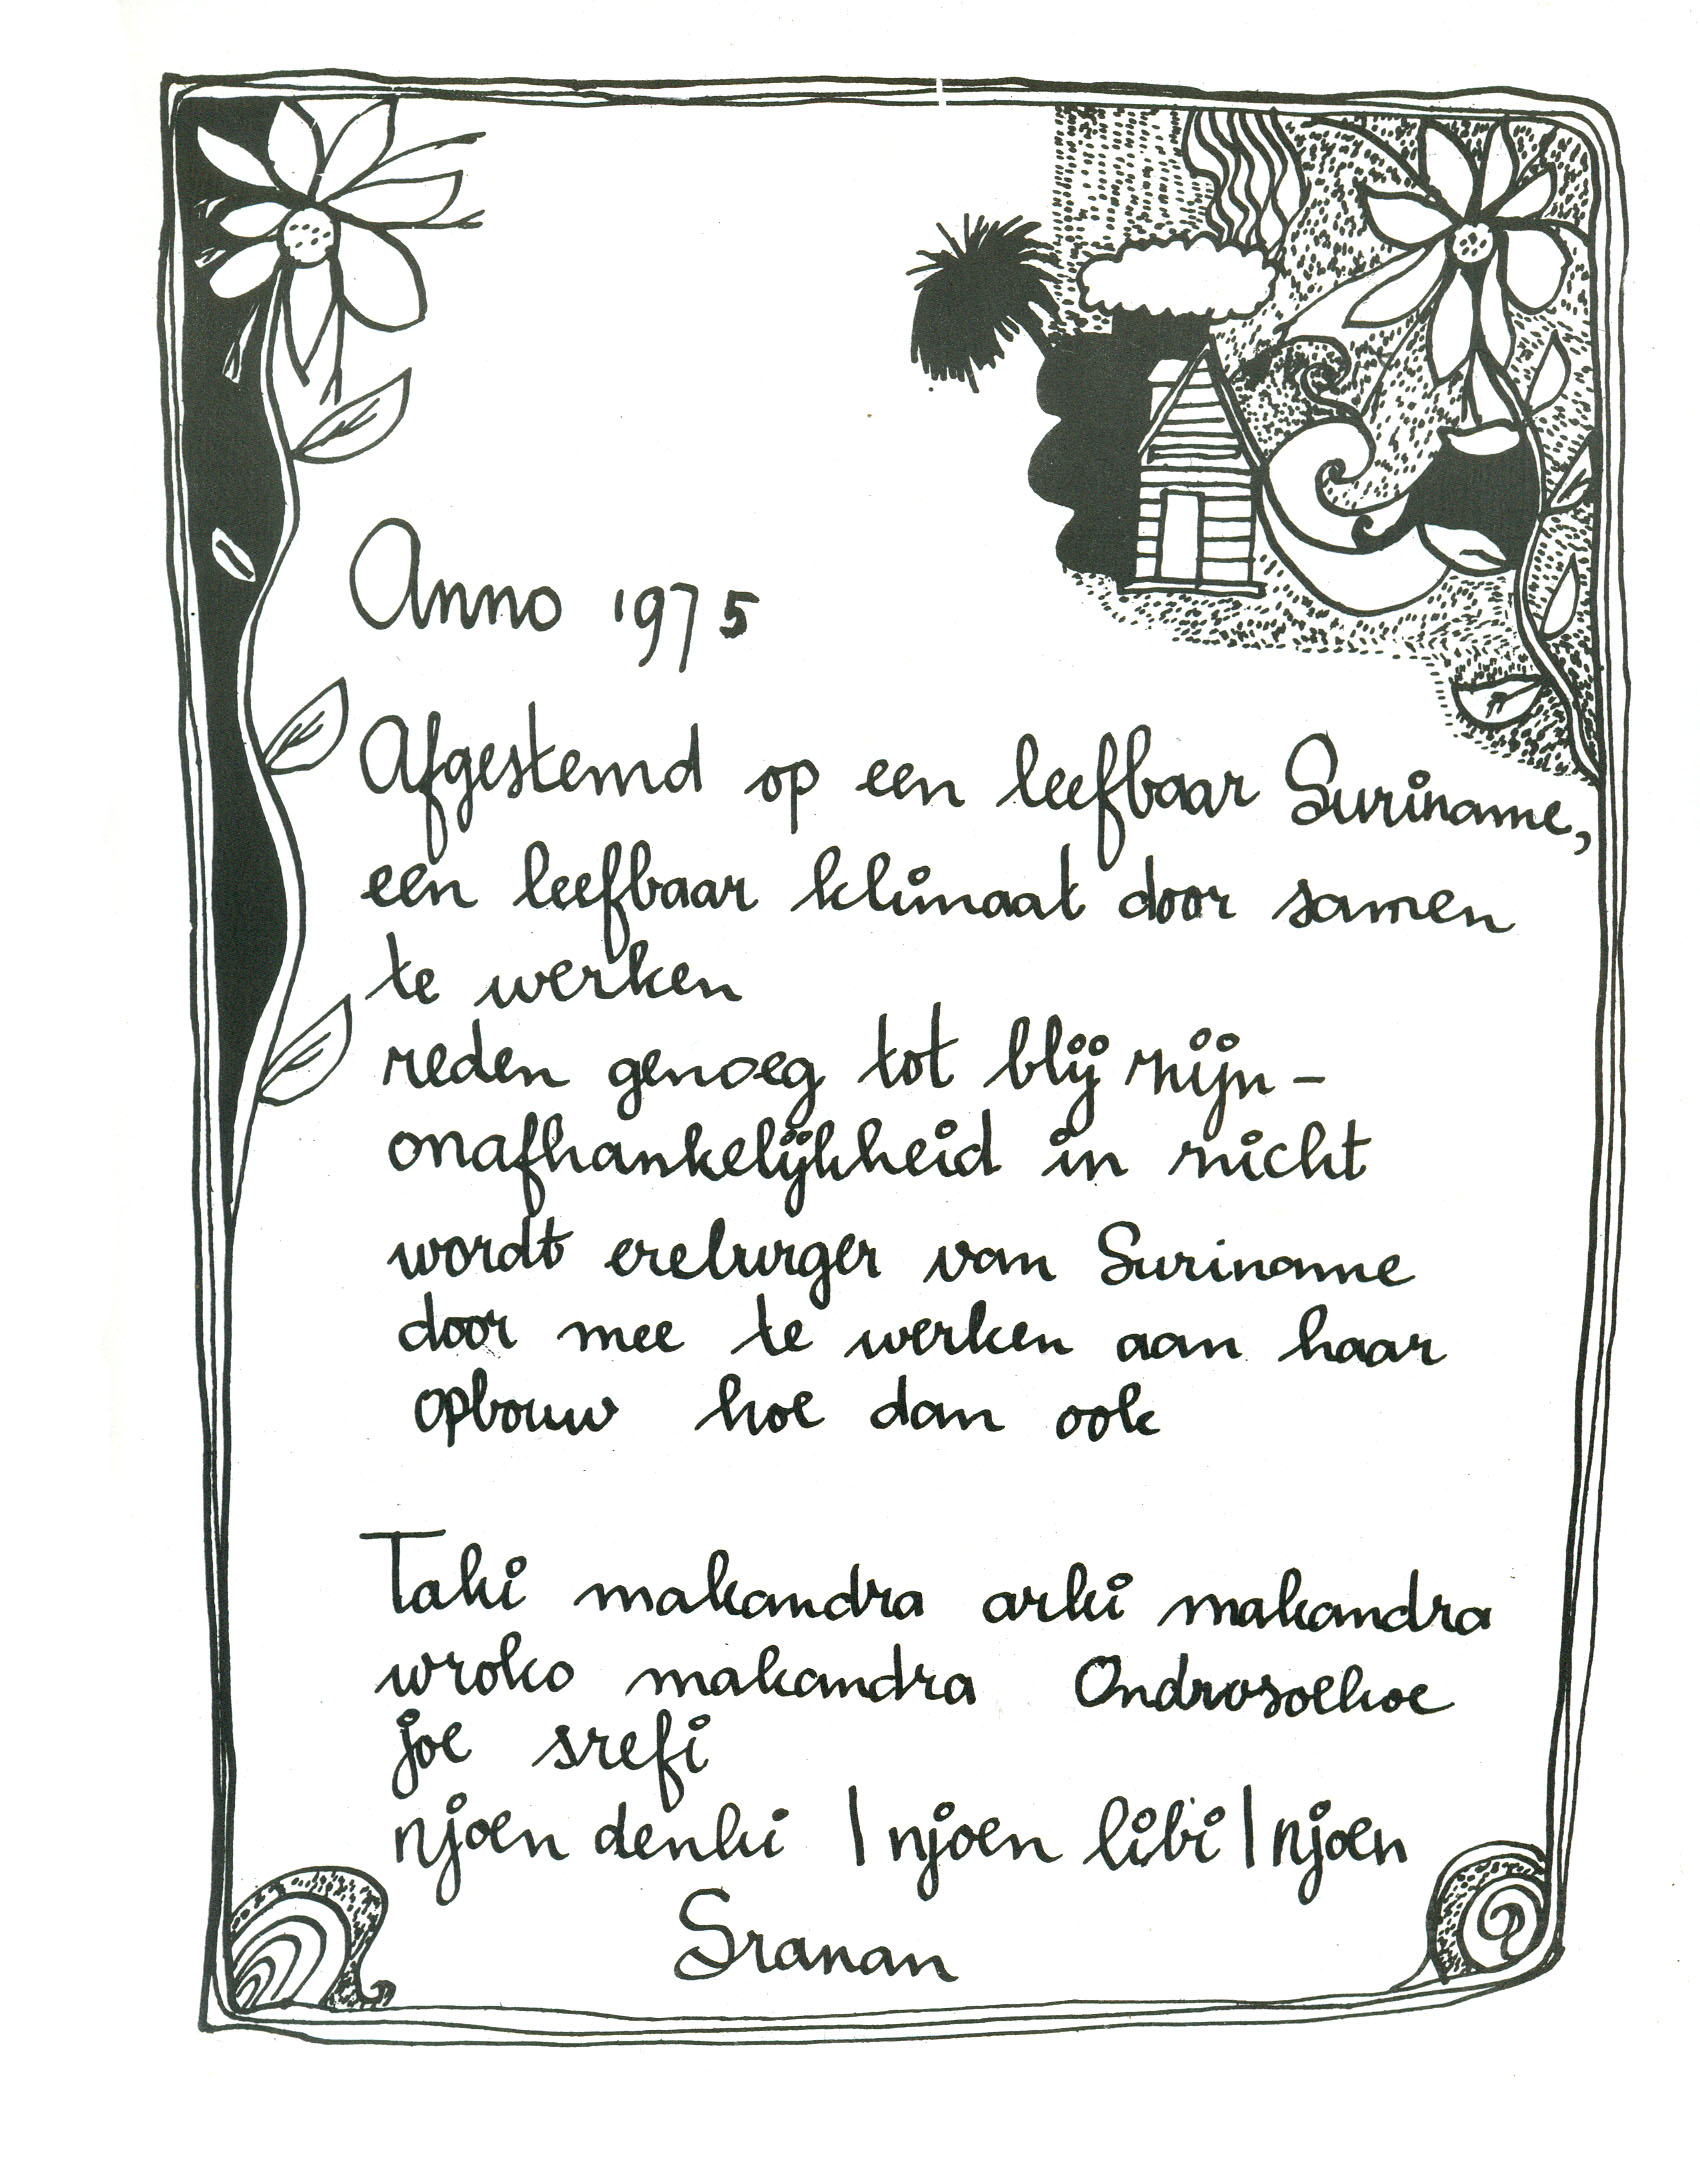 Anno 1975
Afgestemd op een leefbaar Suriname,
een leefbaar klimaat door samen
te werken
reden genoeg tot blij zijn -
onafhankelijkheid in zicht
wordt ereburger van Suriname
door mee te werken aan haar
opbouw hoe dan ook
Taki makandra arki makandra
wroko makandra Ondrosoekoe
joe srefi
njoen denki | njoen libi | njoen
Sranan